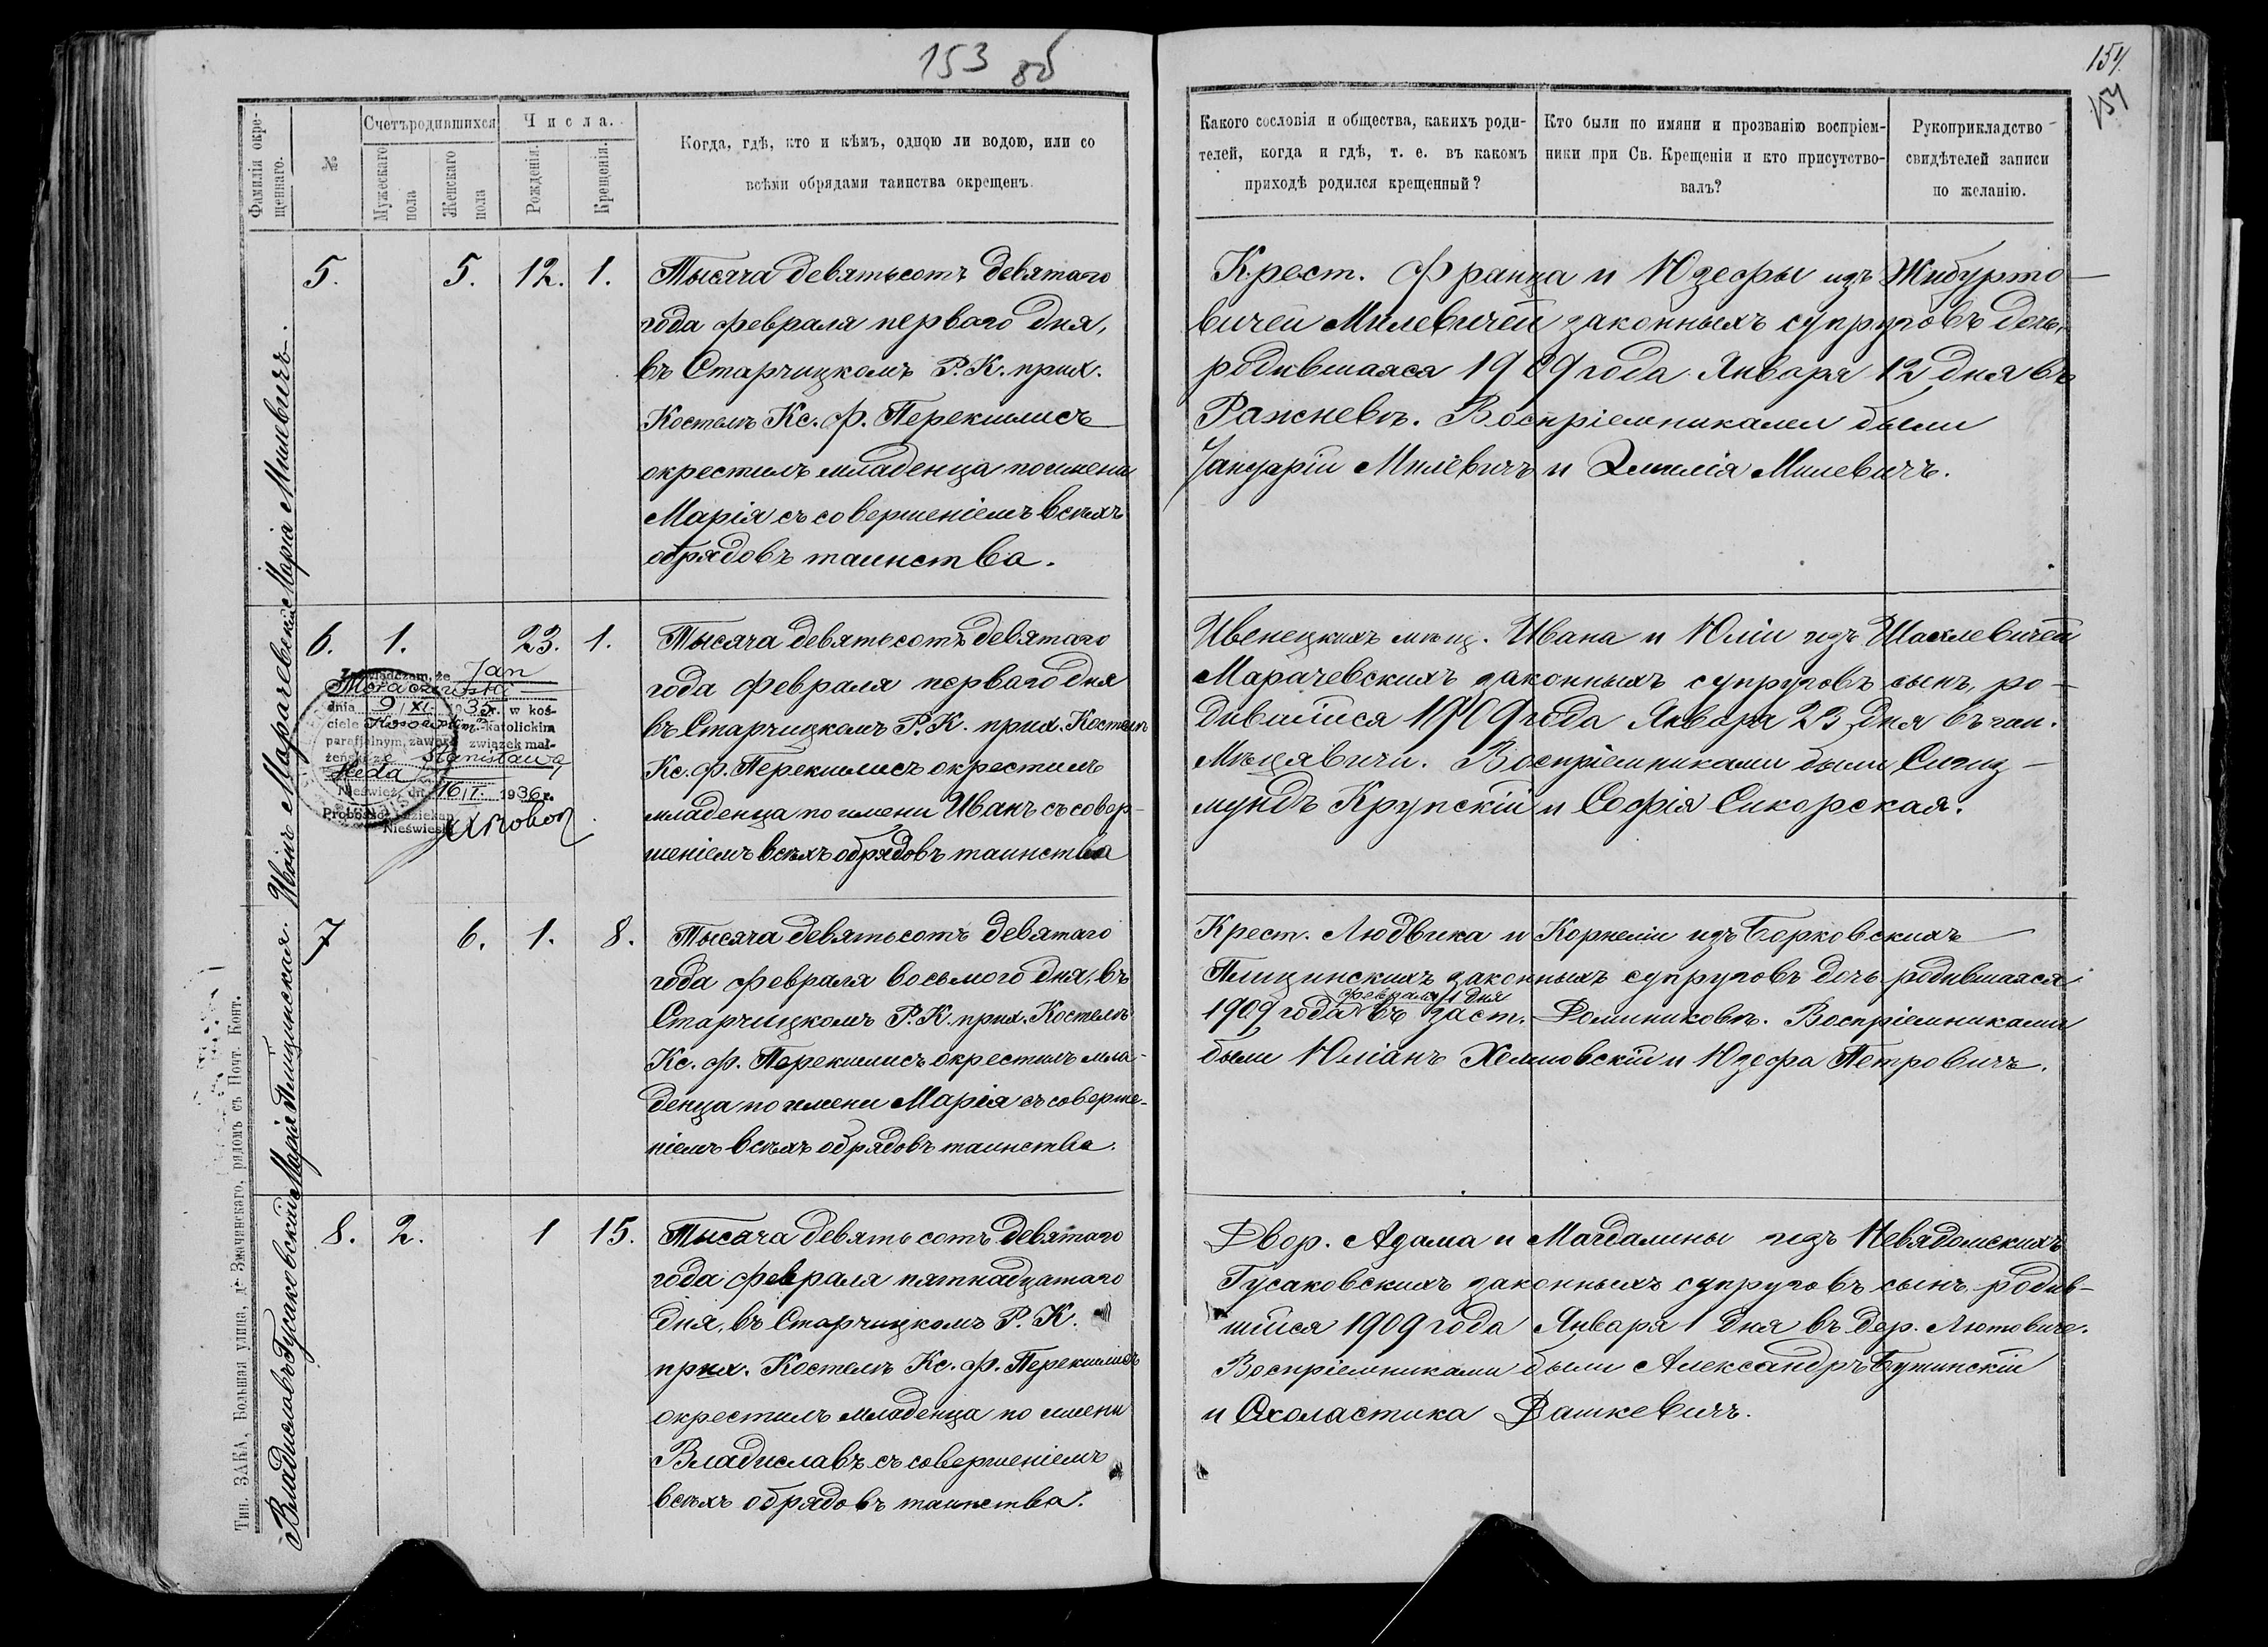 153 об
154.
154
Фамилія окре-
щеннаго.
№
Счетъ родившихся
Мужескаго
пола
Женскаго
пола
Числа.
Рожденія.
Крещенія.
Когда, гдѣ, кто и кѣмъ, одною ли водою, или со
всѣми обрядами таинства окрещенъ.
Какого сословія и общества, какихъ роди-
телей, когда и гдѣ, т. е. въ какомъ
приходѣ родился крещенный?
Кто были по имяни и прозванію воспріем-
ники при Св. Крещеніи и кто присутство-
валъ?
Рукоприкладство
свидѣтелей записи
по желанію.
Марія Милевичъ.
5. 5. 12. 1.
Тысяча девятьсотъ девятаго
года февраля перваго дня,
въ Старчицкомъ Р. К. прих.
Костелѣ Кс. Ф. Перекшлисъ
окрестилъ младенца по имени
Марія съ совершеніемъ всѣхъ
обрядовъ таинства.
Крест. Франца и Юзефы изъ Жибурто-
вичей Милевичей законныхъ супруговъ дочь,
родившаяся 1909 года Января 12 дня въ
Ражневѣ. Воспріемниками были
Януарій Милевичъ и Эмилія Милевичъ.
Иванъ Марачевскій
6. 1. 23. 1.
Zaświadczam, że Jan
Moraczewski
dnia 9/XI. 1935 r. w koś-
ciele rzym.-katolickim
parafjalnym, zawarł związek mał-
żeński z Stanisławą
Nieśwież, dn. 16/I. 1936 r.
Proboszcz i Dziekan
Nieświeski
Тысяча девятьсотъ девятаго
года февраля перваго дня
въ Старчицкомъ Р. К. прих. Костелѣ
Кс. Ф. Перекшлисъ окрестилъ
младенца по имени Иванъ съ совер-
шеніемъ всѣхъ обрядовъ таинства
Ивенецкихъ мѣщ. Ивана и Юліи изъ Шахлевичей
Марачевскихъ законныхъ супруговъ сынъ, ро-
дившійся 1909 года Января 23 дня въ
Мѣцявичи. Воспріемниками были Сигиз-
мундъ Крупскій и Софія Сикорская.
Марія Плищинская.
7 6. 1. 8.
Тысяча девятьсотъ девятаго
года февраля восьмого дня, въ
Старчицкомъ Р. К. прих. Костелѣ
Кс. Ф. Перекшлисъ окрестилъ мла-
денца по имени Марія съ соверше-
ніемъ всѣхъ обрядовъ таинства.
Крест. Людвика и Корнеліи изъ Борковскихъ
Плищинскихъ законныхъ супруговъ дочь родившаяся
февраля 1 дня
1909 года въ заст. Доминиковѣ. Воспріемниками
были Юліанъ Хелмовскій и Юзефа Петровичъ.
Владиславъ Гусаковскій
8. 2. 1 15.
Тысяча девятьсотъ девятаго
года февраля пятнадцатаго
дня, въ Старчицкомъ Р. К.
прих. Костелѣ Кс. Ф. Перекшлисъ
окрестилъ младенца по имени
Владиславъ съ совершеніемъ
всѣхъ обрядовъ таинства.
Двор. Адама и Магдалины изъ Невядомскихъ
Гусаковскихъ законныхъ супруговъ сынъ, родив-
шійся 1909 года Января 1 дня въ дер. Лютовиче.
Воспріемниками были Александръ Бужинскій
и Схоластика Дашкевичъ.
Тип. ЗАКА, Большая улица, д. Змачинскаго, рядомъ съ Почт. Конт.